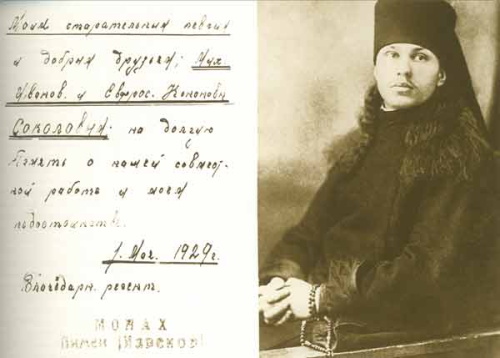 Моим старательным певцам
и добрым друзьям; Мих.
Иванов. и Евфрос. Кононовн.
Соколовым на долгую
Память о нашей совмест-
ной работе и моем
1. Ноя. 1929 г.
Благодарн. регент.
МОНАХ
Пимен (Извеков)